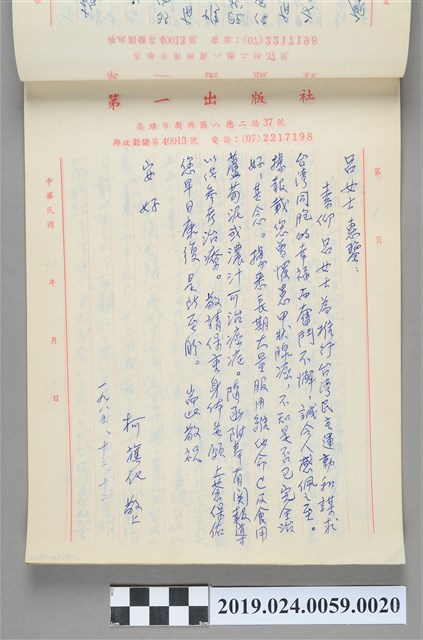 第一出版社
高雄市新興區八德二路37號
郵政劃撥第40013號 電話:(07)2217198
第 頁
呂女士惠鑒:
素仰 呂女士為推行台灣民主運動和謀求
台灣同胞的幸福而奮鬥不懈,誠令人感佩之至。
據報載您曾罹患甲狀腺癌,不知是否已完全治
好,甚念。據悉長期大量服用維他命C及食用
蘆荀泥或濃汁可治癌症。隨函附奉有關報導
以供參考治療。敬請保重身体並願上蒼保佑
您早日康復是所至盼。 耑此敬祝
安好
柯旗化 敬上
一九八五、十二、十二
中華民國 年 月 日
2019.024.0059.0020